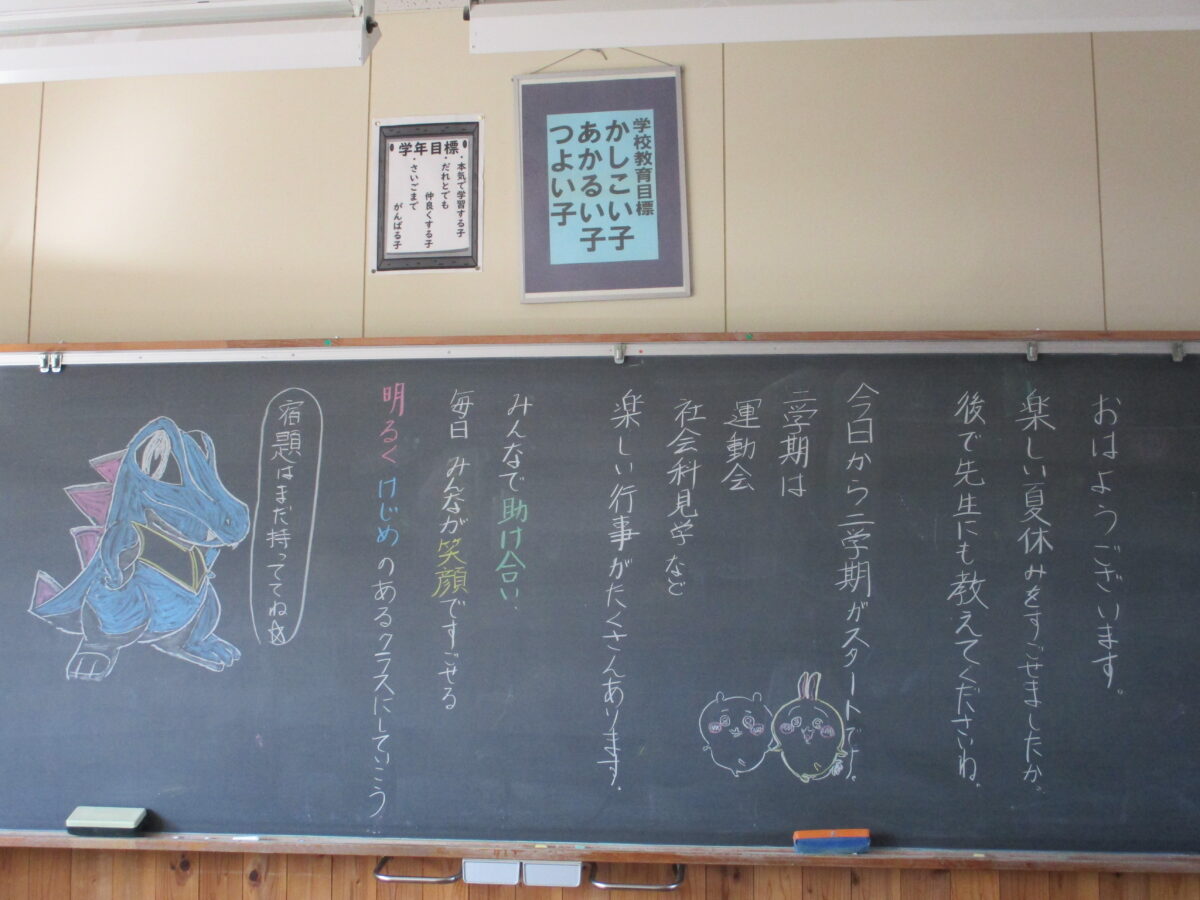 学校教育目標
かしこい子
あかるい子
つよい子
学年目標
・本気で学習する子
・だれとでも
仲良くする子
・さいごまで
がんばる子
おはようございます。
楽しい夏休みをすごせましたか。
後で先生にも教えてくださいね。
今日から二学期がスタートです。
二学期は
運動会
社会科見学 など
楽しい行事がたくさんあります。
みんなで助け合い、
毎日 みんなが笑顔ですごせる
明るく けじめ のあるクラスにしていこう
宿題はまだ持っててね☆